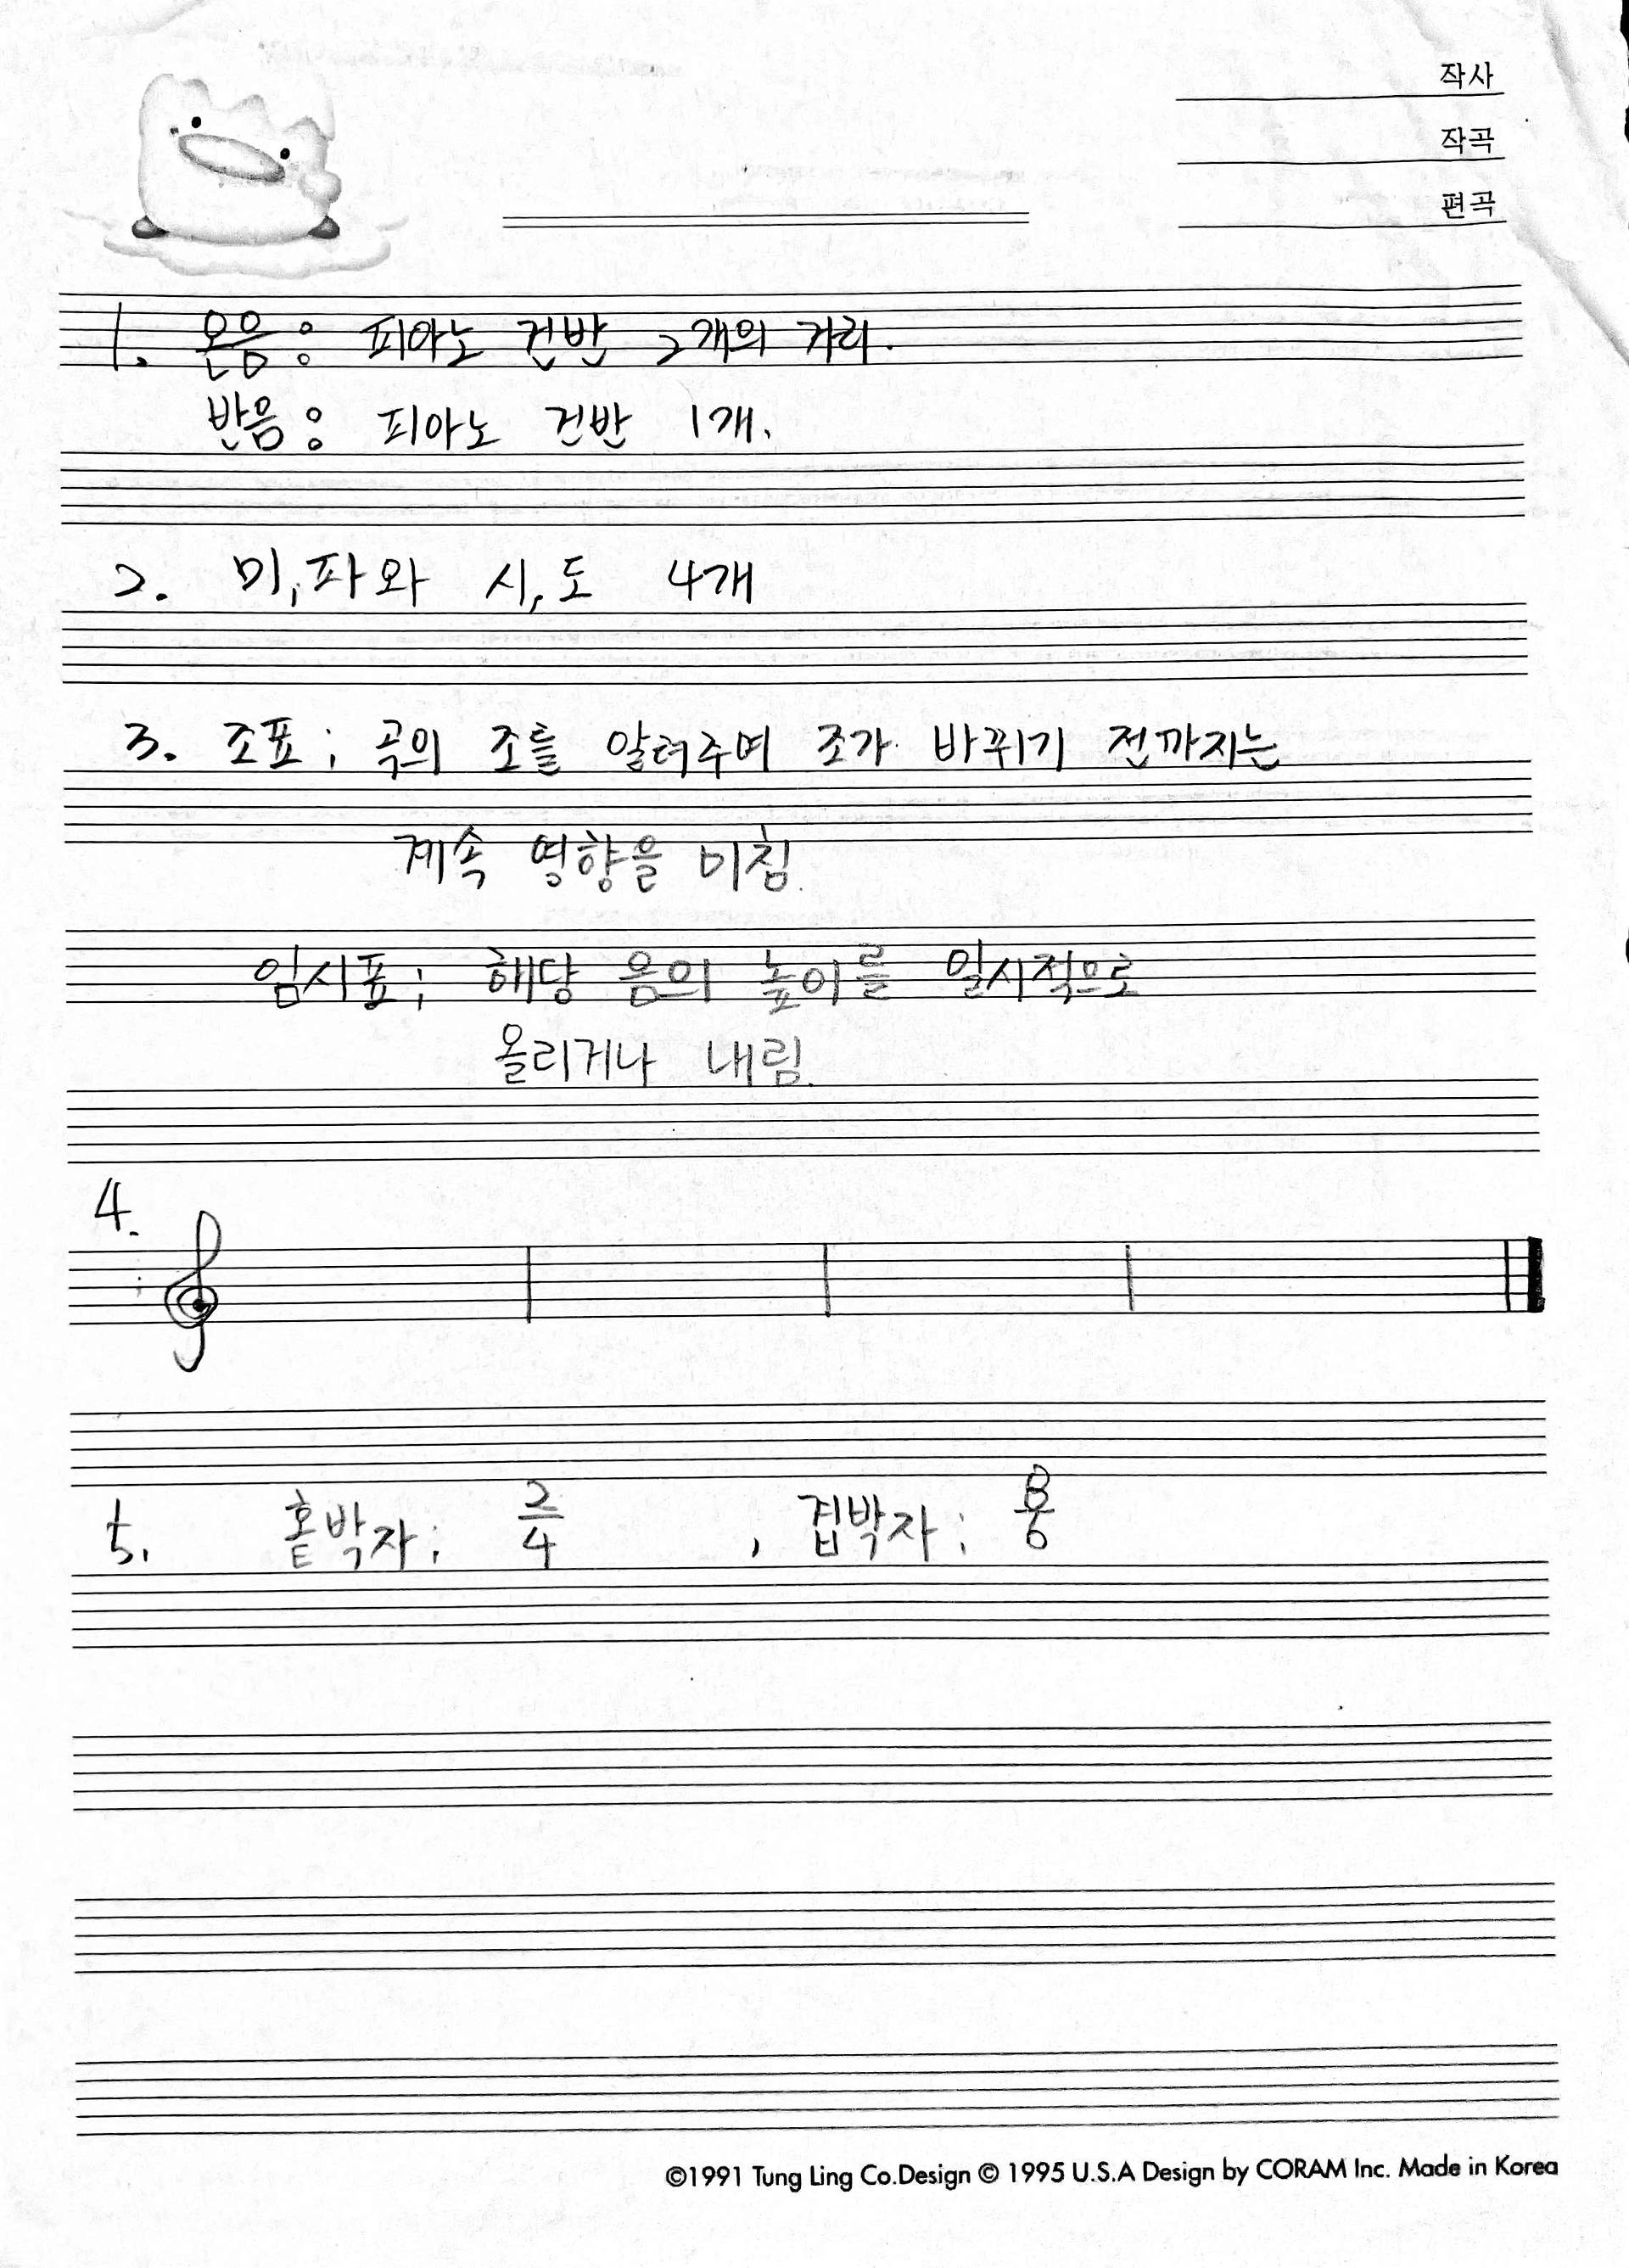 작사
작곡
편곡
1. 온음: 피아노 건반 2개의 거리.
반음: 피아노 건반 1개.
2. 미,파와 시,도 4개
3. 조표; 곡의 조를 알려주며 조가 바뀌기 전까지는
계속 영향을 미침.
임시표; 해당 음의 높이를 일시적으로
올리거나 내림.
4.
5. 홑박자; 2/4 , 겹박자;
©1991 Tung Ling Co.Design © 1995 U.S.A Design by CORAM Inc. Made in Korea